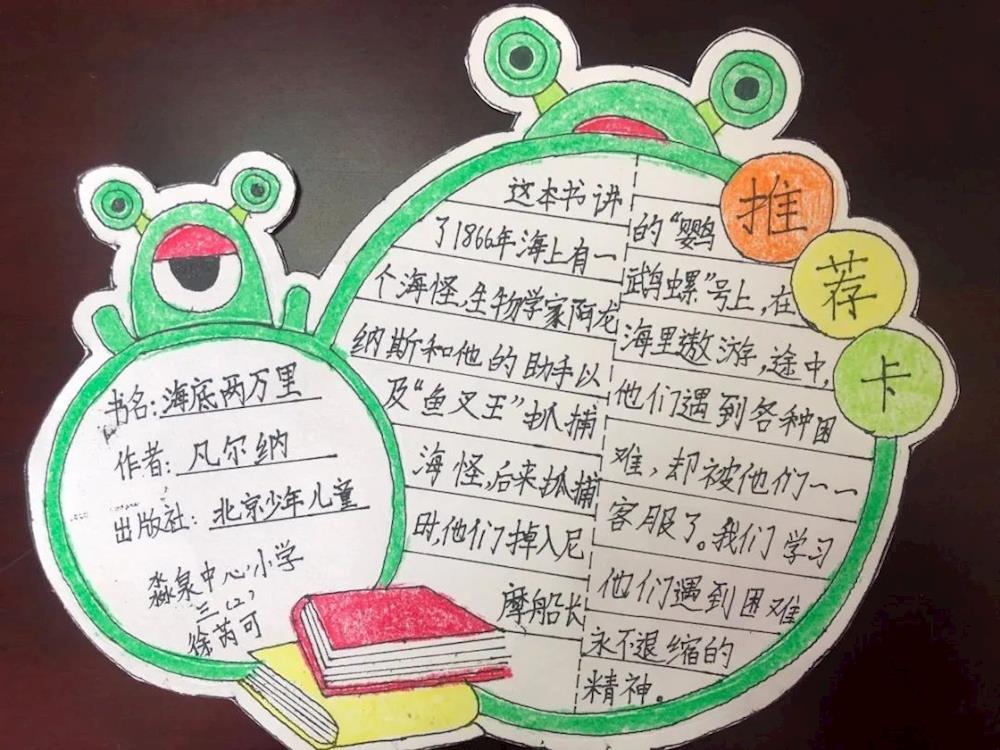 推荐卡
书名:海底两万里
作者:凡尔纳
出版社:北京少年儿童
淼泉中心小学
三(2)
徐芮可
这本书讲
了1866年海上有一
个海怪,生物学家阿龙
纳斯和他的助手以
及“鱼叉王”抓捕
海怪,后来抓捕
时,他们掉入尼
摩船长
的“鹦鸟
鹉螺”号上,在
海里遨游,途中,
他们遇到各种困
难,却被他们一一
客服了。我们学习
他们遇到困难
永不退缩的
精神。